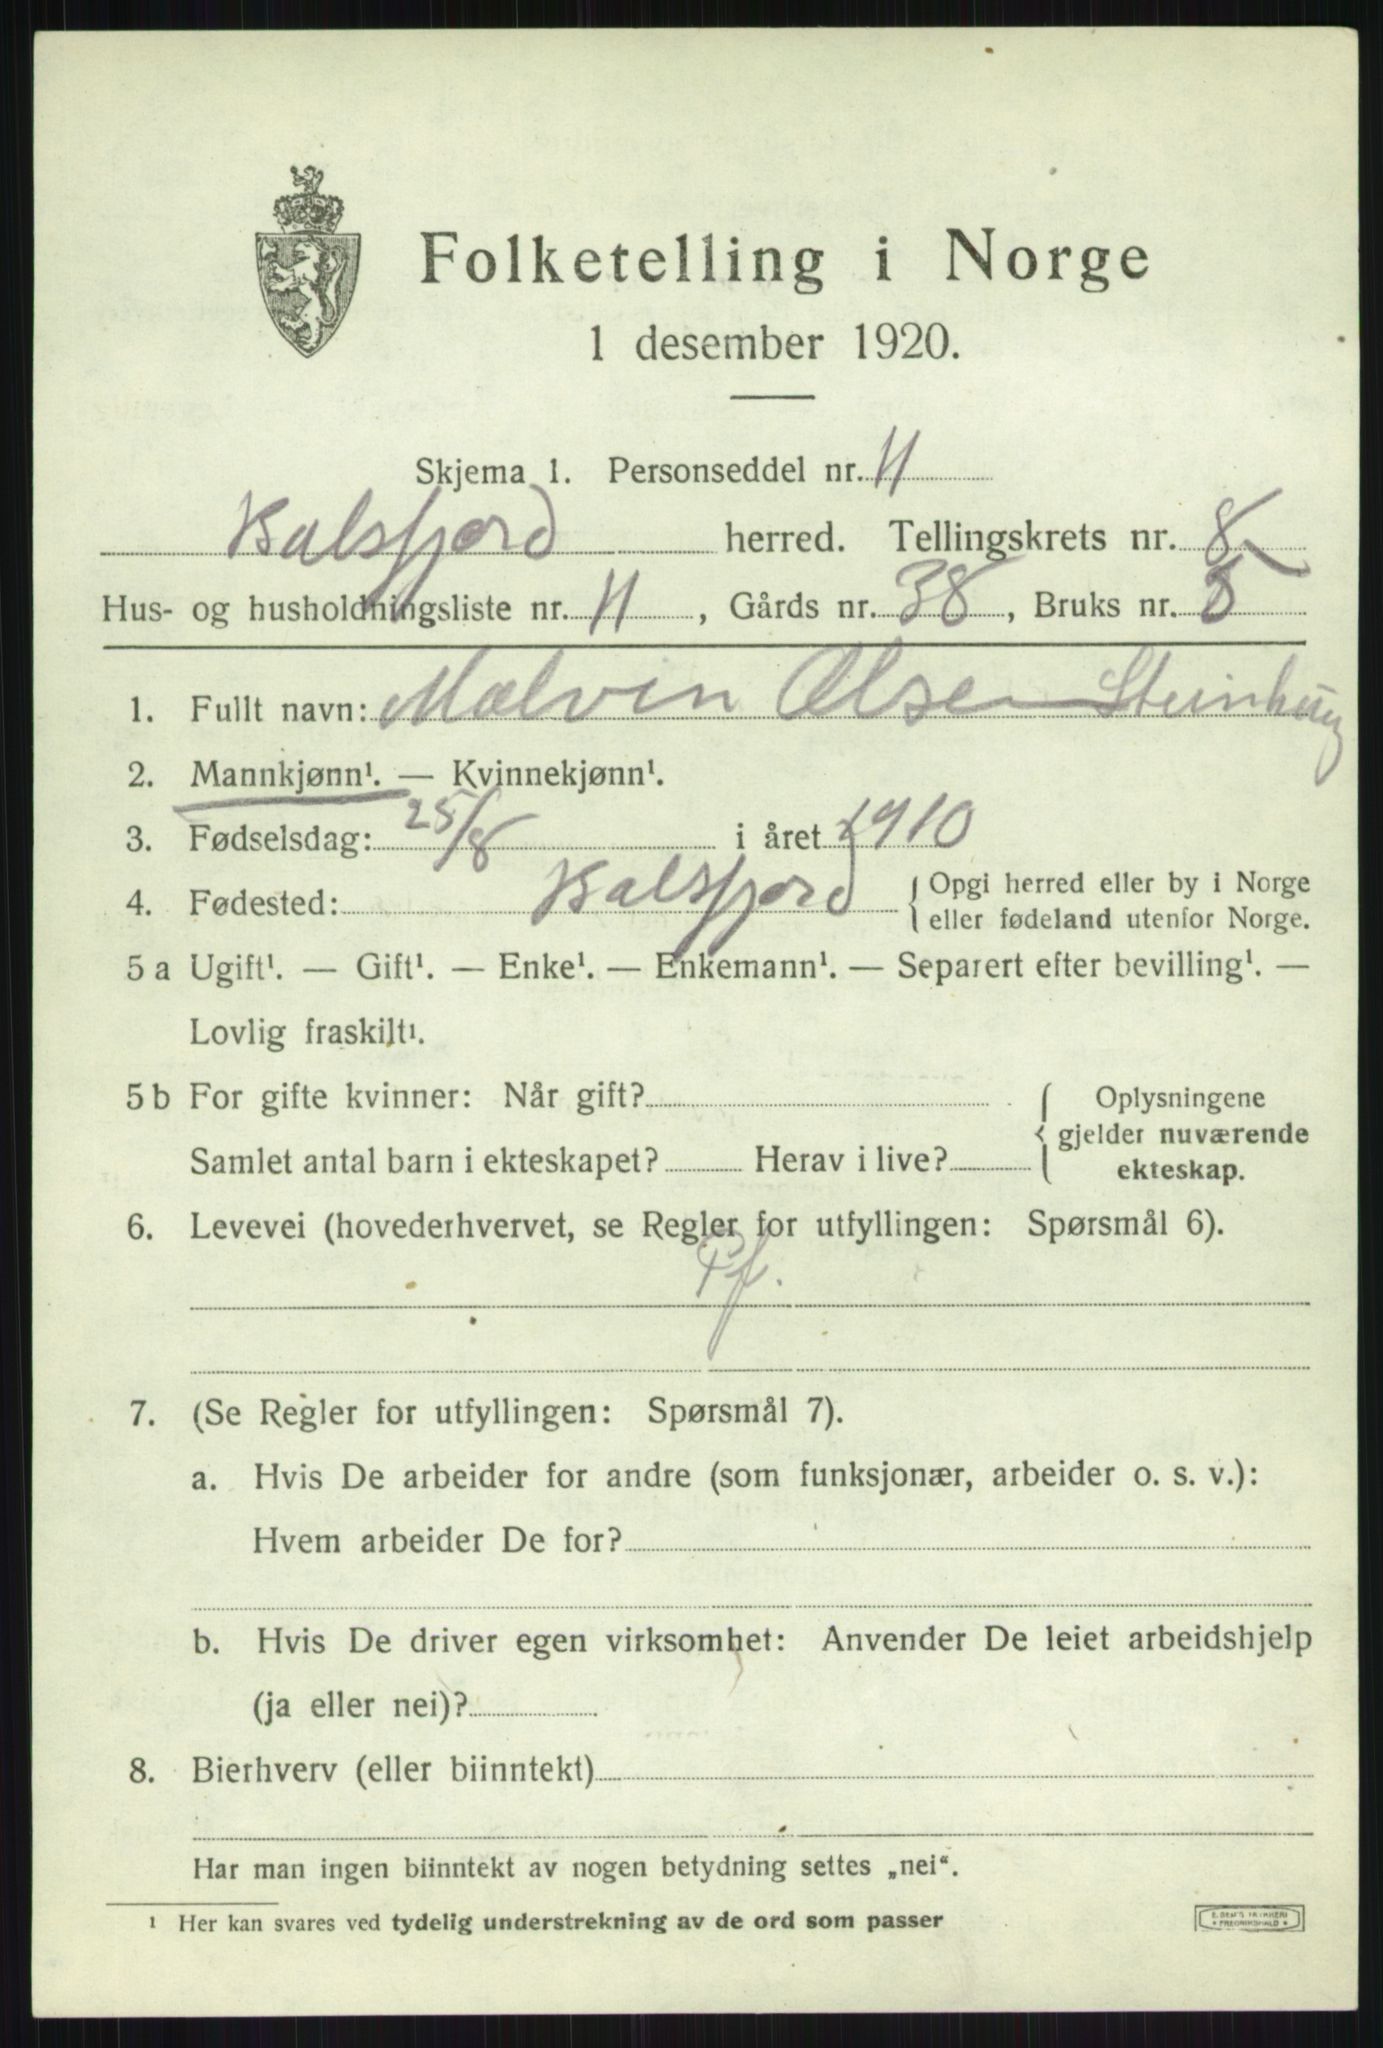 Folketelling i Norge
1 desember 1920.
Skjema 1. Personseddel nr. 11
Balsfjord herred. Tellingskrets nr. 8
Hus- og husholdningsliste nr. 11, Gårds nr. 38, Bruks nr. 5
1. Fullt navn: Malvin Olsen
2. Mannkjønn¹. — Kvinnekjønn¹.
3. Fødselsdag: 25/8 i året 1910
4. Fødested: Balsfjord { Opgi herred eller by i Norge
eller fødeland utenfor Norge.
5 a Ugift¹. — Gift¹. — Enke¹. — Enkemann¹. — Separert efter bevilling¹. —
Lovlig fraskilt¹.
5 b For gifte kvinner: Når gift? { Oplysningene
gjelder nuværende
Samlet antal barn i ekteskapet? Herav i live? ekteskap.
6. Levevei (hovederhvervet, se Regler for utfyllingen: Spørsmål 6).
Pf.
7. (Se Regler for utfyllingen: Spørsmål 7).
a. Hvis De arbeider for andre (som funksjonær, arbeider o. s. v.):
Hvem arbeider De for?
b. Hvis De driver egen virksomhet: Anvender De leiet arbeidshjelp
(ja eller nei)?
8. Bierhverv (eller biinntekt)
Har man ingen biinntekt av nogen betydning settes „nei“.
¹ Her kan svares ved tydelig understrekning av de ord som passer
E. SEM'S TRYKKERI
• FREDRIKSHALD •